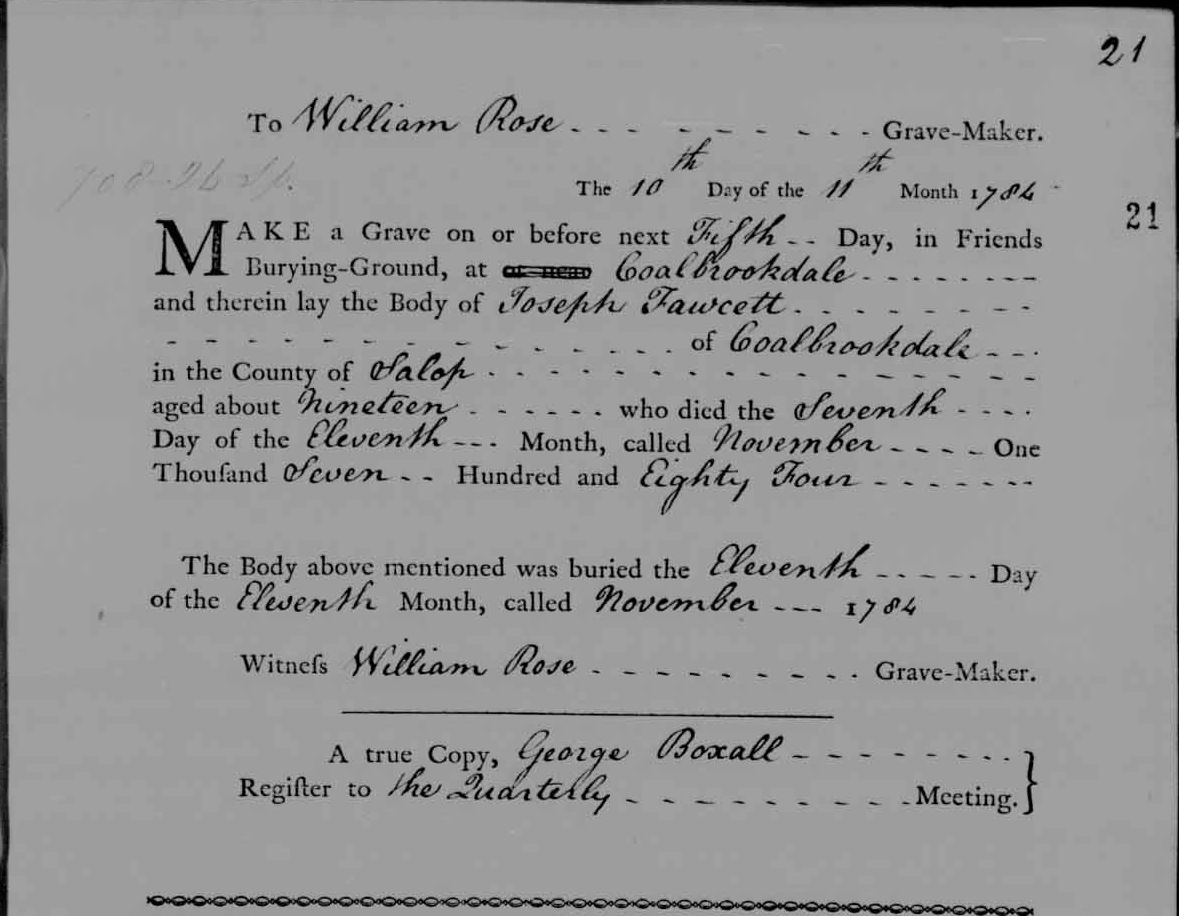 21
To William Rose - - - - - - - - - Grave-Maker.
The 10th Day of the 11th Month 1784
21
MAKE a Grave on or before next Fifth - - Day, in Friends
Burying-Ground, at or near Coalbrookdale - - - - - - - -
and therein lay the Body of Joseph Fawcett - - - - - - - -
- - - - - - - - - - - - - of Coalbrookdale - - -
in the County of Salop - - - - - - - - - - - - - - - -
aged about Nineteen - - - - - - who died the Seventh - - - -
Day of the Eleventh - - - Month, called November - - - - One
Thouſand Seven - - Hundred and Eighty Four - - - - - - -
The Body above mentioned was buried the Eleventh - - - - - Day
of the Eleventh Month, called November - - - 1784
Witneſs William Rose - - - - - - - - - Grave-Maker.
A true Copy, George Boxall - - - - - - - - -
Regiſter to the Quarterly - - - - - - - - - Meeting.